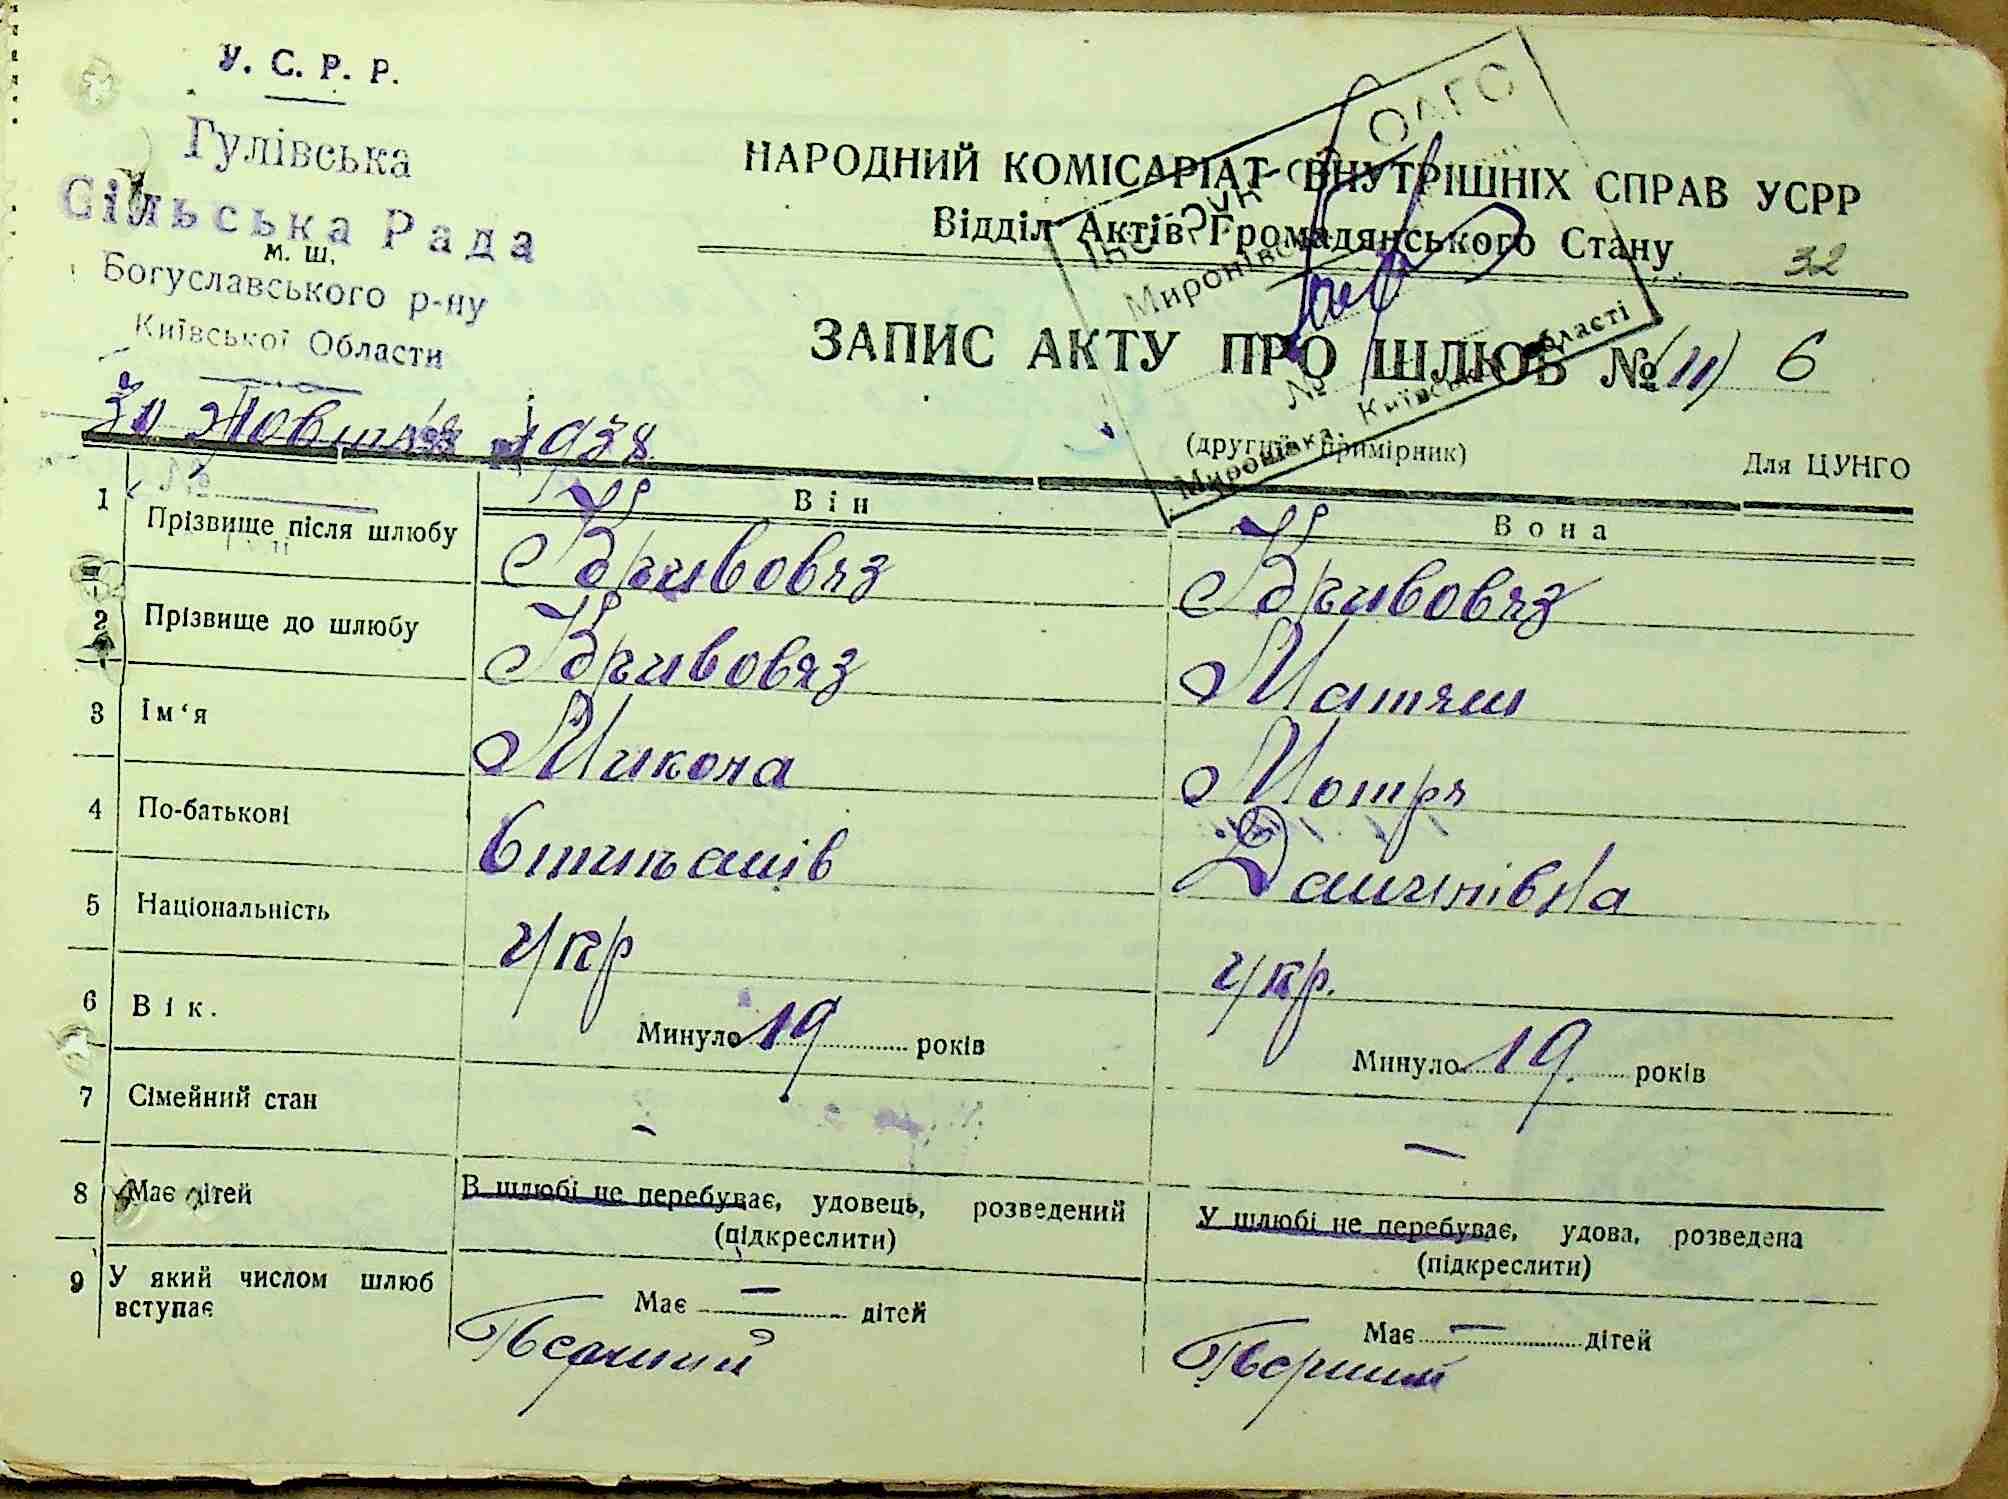 У. С. Р. Р.
Гулівська
Сільська Рада
м. ш.
Богуславського р-ну
Київської Области
30 Жовтня 1938
№
НАРОДНИЙ КОМІСАРІАТ ВНУТРІШНІХ СПРАВ УСРР
Відділ Актів Громадянського Стану
32
ОАГС
Миронівс
№
Миронівка, Київської області
ЗАПИС АКТУ ПРО ШЛЮБ № (11) 6
(другий примірник)
Для ЦУНГО
Він
Вона
1 Прізвище після шлюбу Кривовяз Кривовяз
2 Прізвище до шлюбу Кривовяз Матяш
3 Ім‘я Микола Мотря
4 По-батькові Степанів Данилівна
5 Національність укр укр.
6 Вік. Минуло 19 років Минуло 19 років
7 Сімейний стан – –
В шлюбі не перебуває, удовець, розведений У шлюбі не перебуває, удова, розведена
(підкреслити) (підкреслити)
8 Має дітей Має – дітей Має – дітей
9 У який числом шлюб
вступає Перший Перший